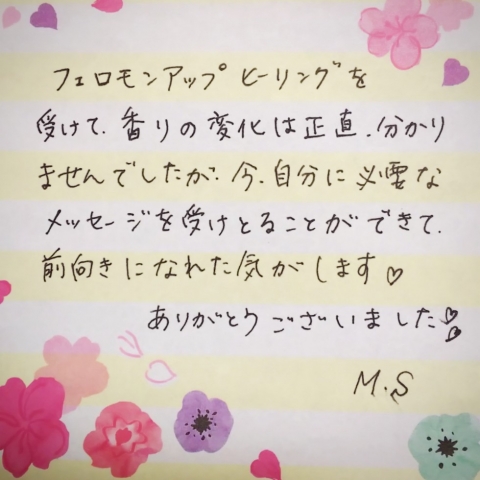 フェロモンアップヒーリングを
受けて、香りの変化は正直、分かり
ませんでしたが、今、自分に必要な
メッセージを受けとることができて、
前向きになれた気がします♡
ありがとうございました♡♡
M.S